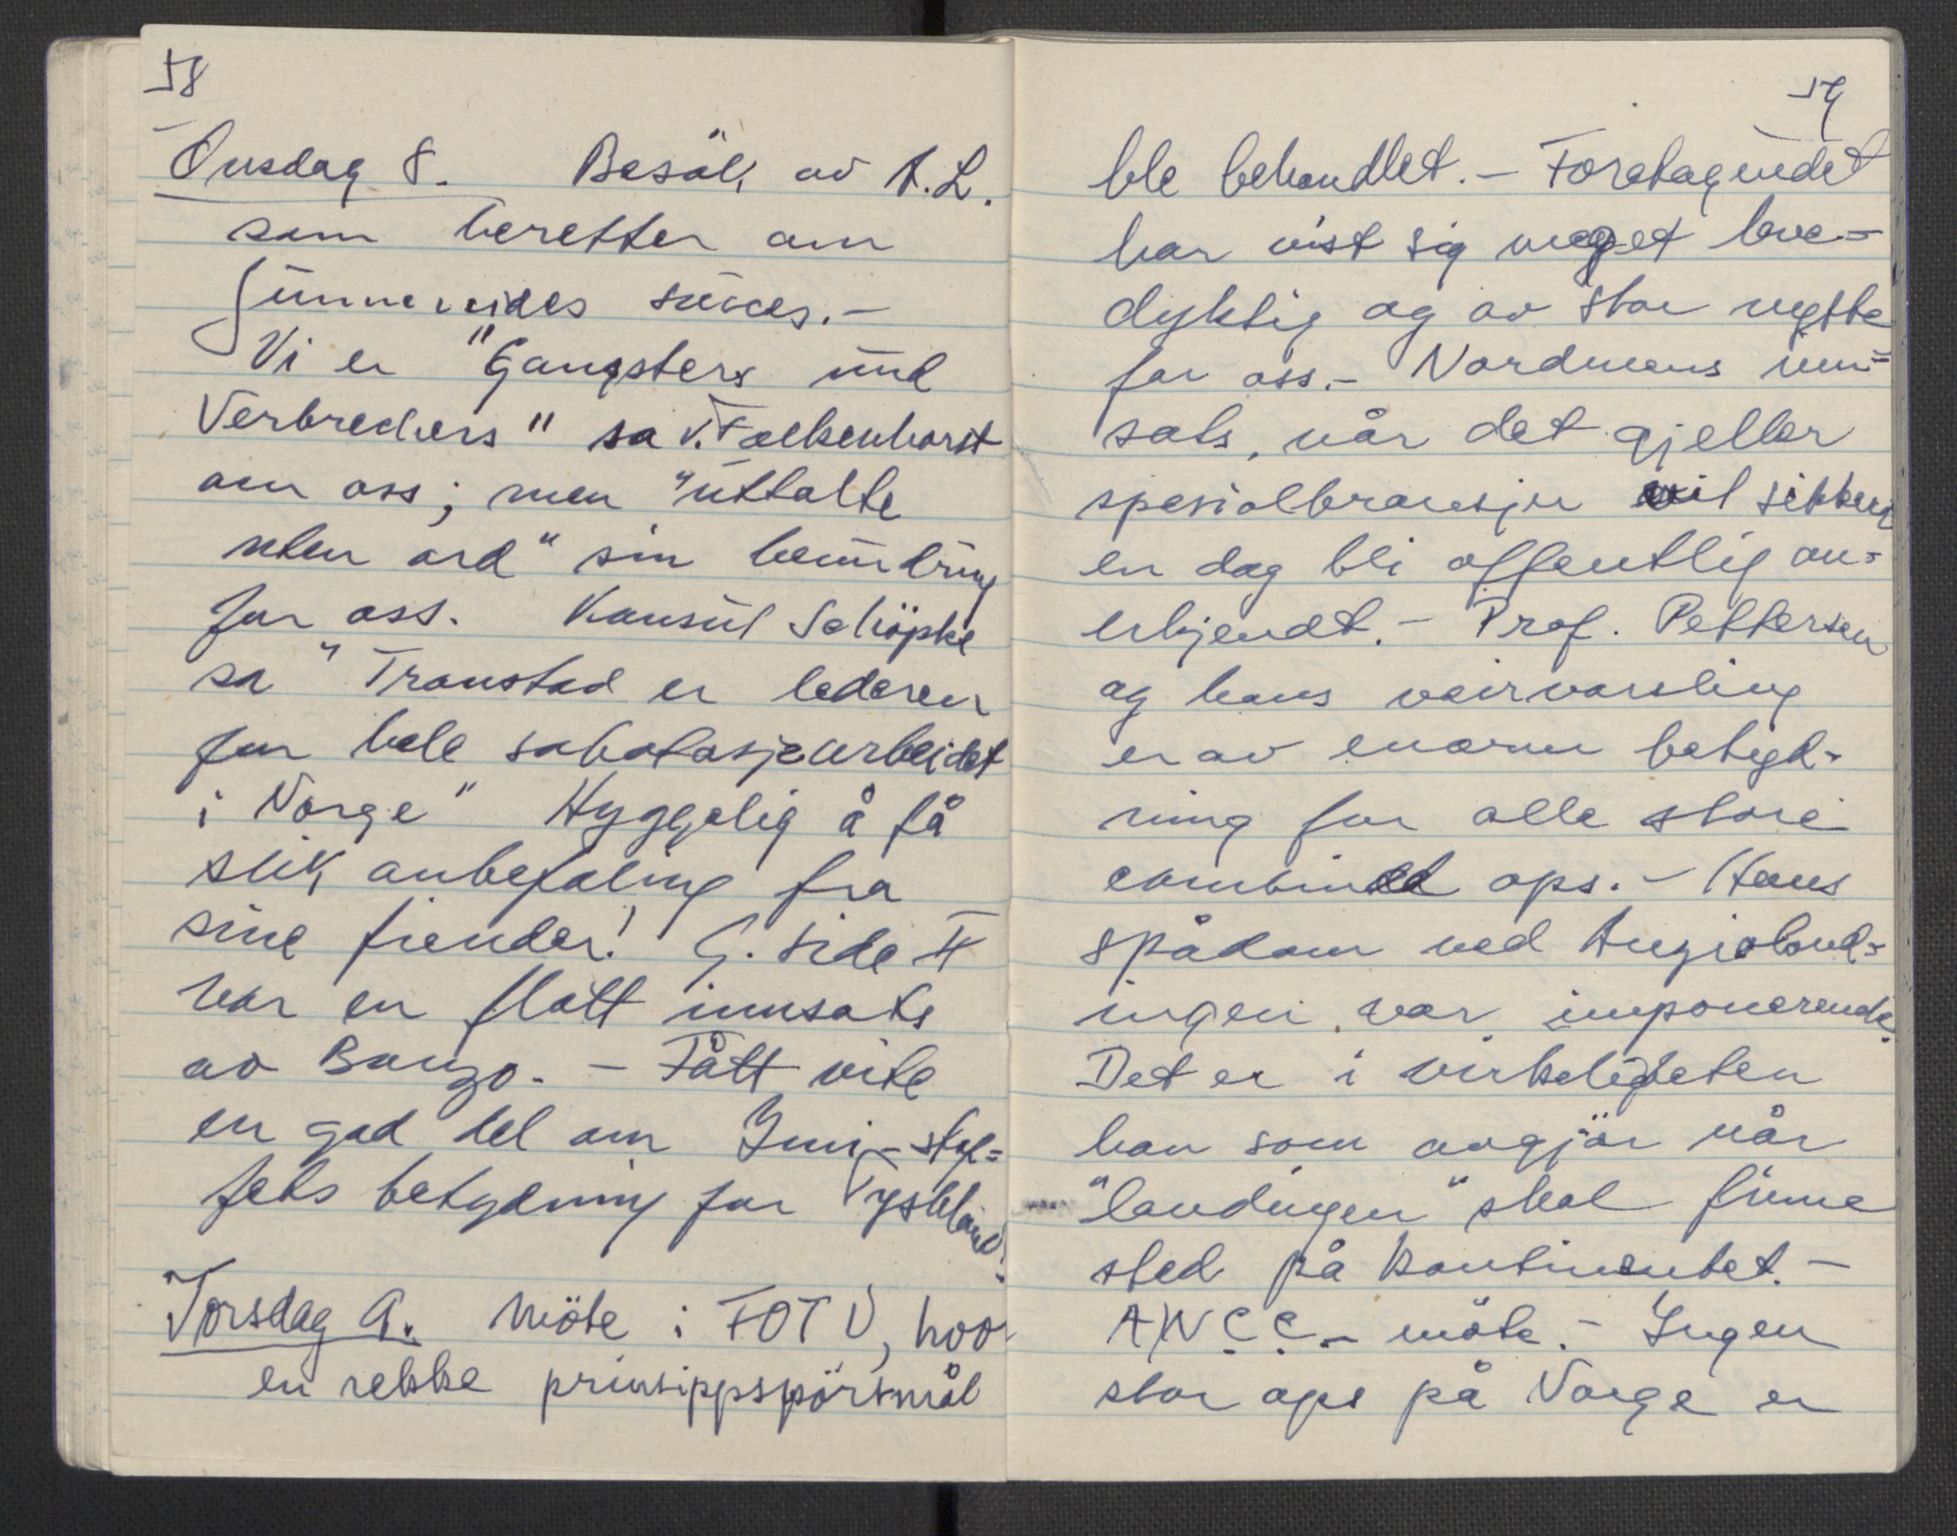 58
Onsdag 8. Besök av A.L.
som beretter om
Gunnersides succes.-
Vi er "Gangsters und
Verbrechers" sa v. Falkenhorst
om oss; men "uttalte
uten ord" sin beundring
for oss. Konsul Schöpke
sa "Tronstad er lederen
for hele sabotasjearbeidet
i Norge" Hyggelig å få
slik anbefaling fra
sine fiender! G. side II
var en flott innsats
av Bonzo. - Fått vite
en god del om Juni-stof=
fets betydning for Tyskland!
Torsdag 9. Möte i FOTU, hvor
en rekke prinsippspörsmål
59
ble behandlet. - Foretagendet
har vist sig meget leve=
dyktig og av stor nytte
for oss. - Nordmens inn=
sats, når det gjeller
spesialbransjer vil sikkert
en dag bli offentlig an=
erkjendt. - Prof. Pettersen
og hans veirvarsling
er av enorm betyd-
ning for alle store
combined ops. - Hans
spådom ved Anzioland=
ingen var imponerende.
Det er i virkeligheten
han som avgjör når
"landingen" skal finne
sted på kontinentet. -
ANCC - möte. - Ingen
stor ops på Norge er